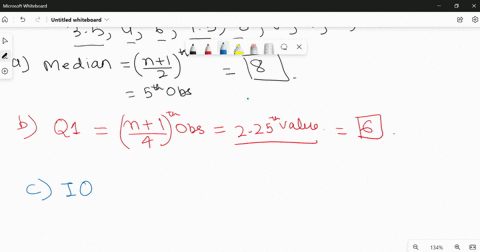 Microsoft Whiteboard
Untitled whiteboard
3.5, 4, 6,
a) Median = (n+1/2)th = 8.
= 5th Obs
b) Q1 = (n+1/4)th Obs = 2.25th value. = 6.
c) IO
134%